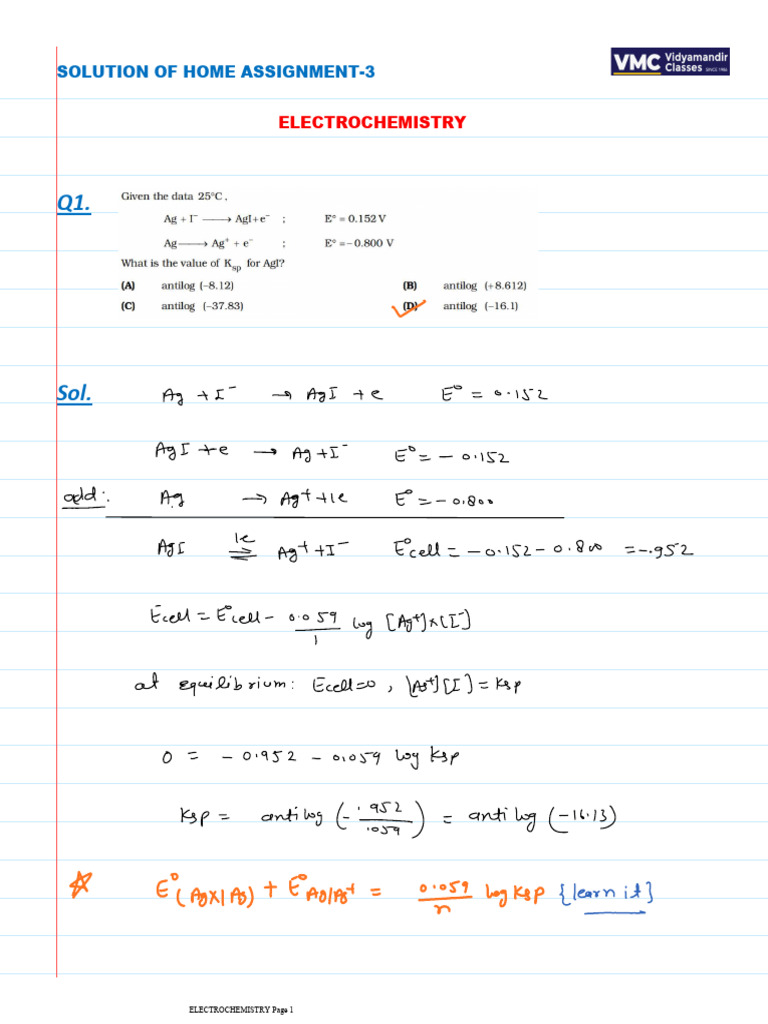 SOLUTION OF HOME ASSIGNMENT-3
VMC Vidyamandir Classes SINCE 1986
ELECTROCHEMISTRY
Q1.
Given the data 25°C ,
Ag + I⁻ ⟶ AgI+e⁻ ; E° = 0.152 V
Ag ⟶ Ag⁺ + e⁻ ; E° =− 0.800 V
What is the value of Ksp for AgI?
(A) antilog (−8.12) (B) antilog (+8.612)
(C) antilog (−37.83) (D) antilog (−16.1)
Sol.
Ag + I⁻ → AgI + e E° = 0.152
AgI + e → Ag + I⁻ E° = − 0.152
add: Ag → Ag⁺ + 1e E° = − 0.800
AgI 1e ⇌ Ag⁺ + I⁻ E°cell = − 0.152 − 0.800 = −.952
Ecell = E°cell − 0.059/1 log [Ag⁺]×[I⁻]
at equilibrium: Ecell=0, [Ag⁺][I] = Ksp
0 = − 0.952 − 0.059 log Ksp
Ksp = antilog (− .952/.059) = antilog (−16.13)
☆ E°(AgX|Ag) + E°Ag/Ag⁺ = 0.059/n log Ksp {learn it}
ELECTROCHEMISTRY Page 1